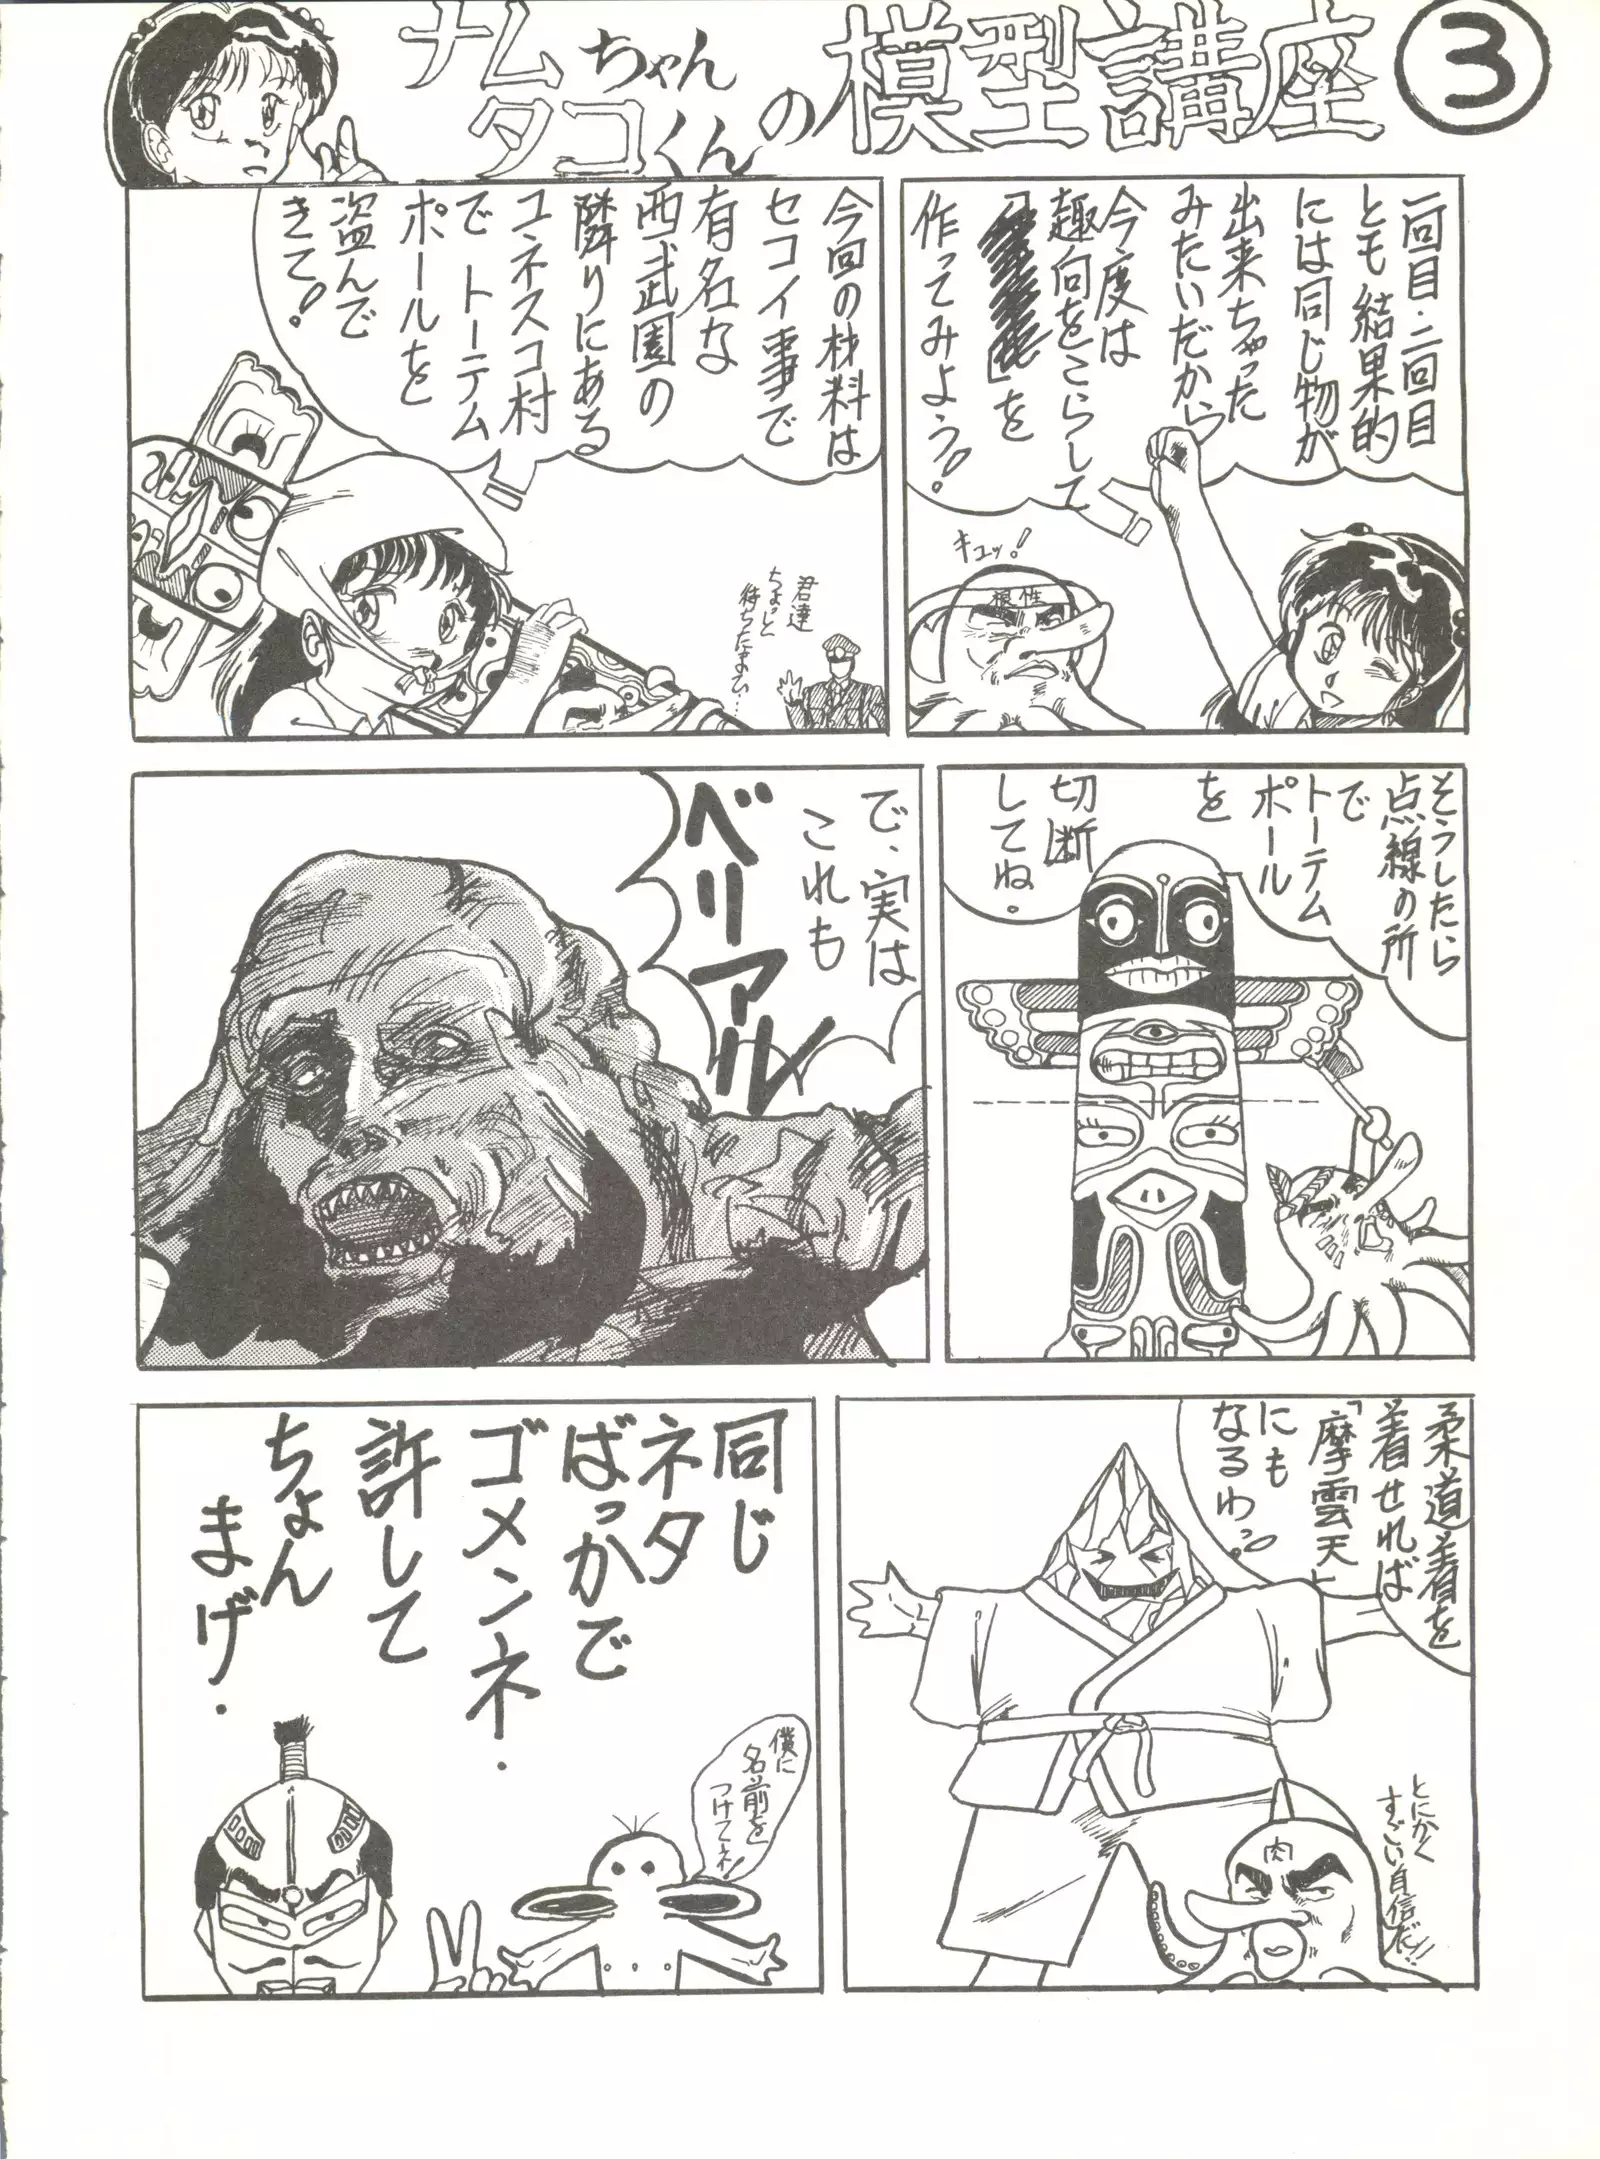 ナムちゃん
タコくん
の模型講座 ③
一回目・二回目
とも結果的
には同じ物が
出来ちゃった
みたいだから
今度は
趣向をこらして
」を
作ってみよう!
キュッ!
根性
今回の材料は
セコイ事で
有名な
西武園の
隣りにある
ユネスコ村
でトーテム
ポールを
盗んで
きて!
君達
ちょっと
待ちたまひ…
そうしたら
点線の所
で
トーテム
ポール
を
切断
してね。
で、実は
これも
ベリアル
柔道着を
着せれば
「摩雲天」
にも
なるわっ。
とにかく
すごい自信だ!!
肉
同じ
ネタ
ばっかで
ゴメンネ.
許して
ちょん
まげ.
僕に
名前を
つけてネ!